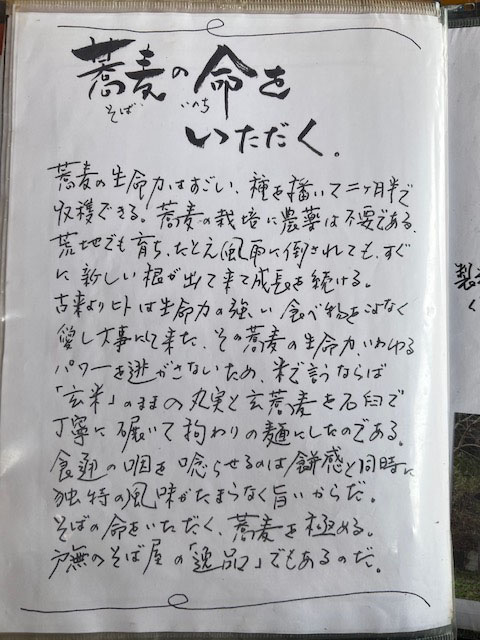 蕎麦の命を
そば いのち
いただく。
蕎麦の生命力はすごい、種を播いて二ヶ月半で
収穫できる。蕎麦の栽培に農薬は不要である、
荒地でも育ち、たとえ風雨に倒されても、すぐ
に新しい根が出て来て成長を続ける。
古来よりヒトは生命力の強い食べ物をこよなく
愛し大事にして来た、その蕎麦の生命力、いわゆる
パワーを逃がさないため、米で言うならば
「玄米」のままの丸実と玄蕎麦を石臼で
丁寧に碾いて拘わりの麺にしたのである。
食通の咽を唸らせるのは餅感と同時に
独特の風味がたまらなく旨いからだ。
そばの命をいただく、蕎麦を極める。
戸無のそば屋の「逸品」でもあるのだ。
製
く